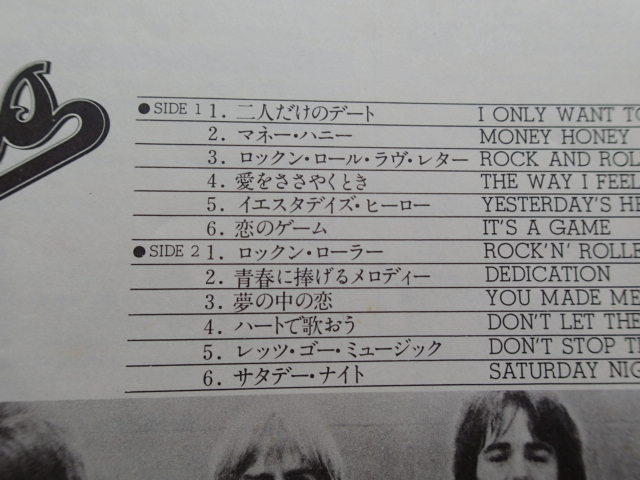 ● SIDE 1 1. 二人だけのデート I ONLY WANT
2. マネー・ハニー MONEY HONEY
3. ロックン・ロール・ラヴ・レター ROCK AND
4. 愛をささやくとき THE WAY I FEEL
5. イエスタデイズ・ヒーロー YESTERDAY'S
6. 恋のゲーム IT'S A GAME
● SIDE 2 1. ロックン・ローラー ROCK'N' ROLLE
2. 青春に捧げるメロディー DEDICATION
3. 夢の中の恋 YOU MADE ME
4. ハートで歌おう DON'T LET THE
5. レッツ・ゴー・ミュージック DON'T STOP
6. サタデー・ナイト SATURDAY